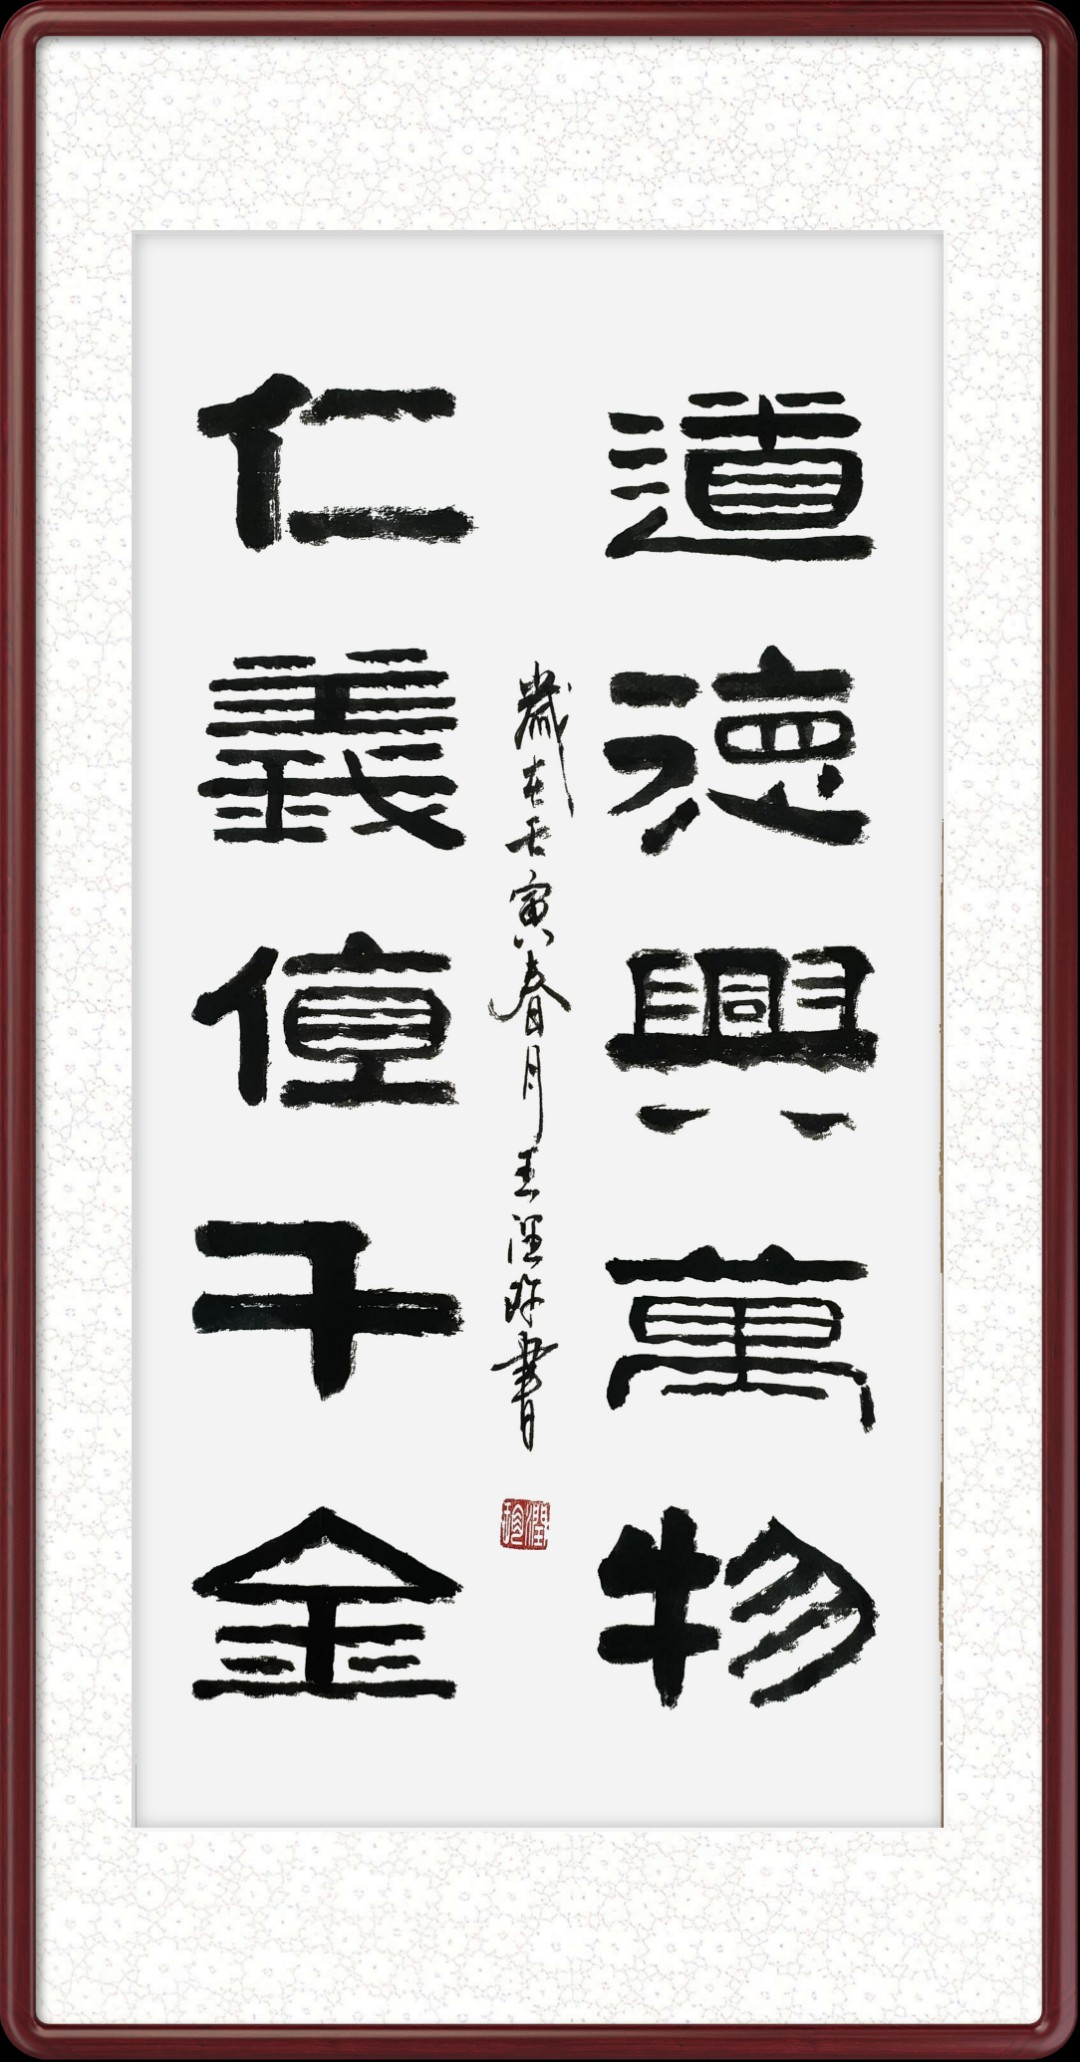 道德興萬物
仁義值千金
歲在壬寅春月王潤珍書
潤珍